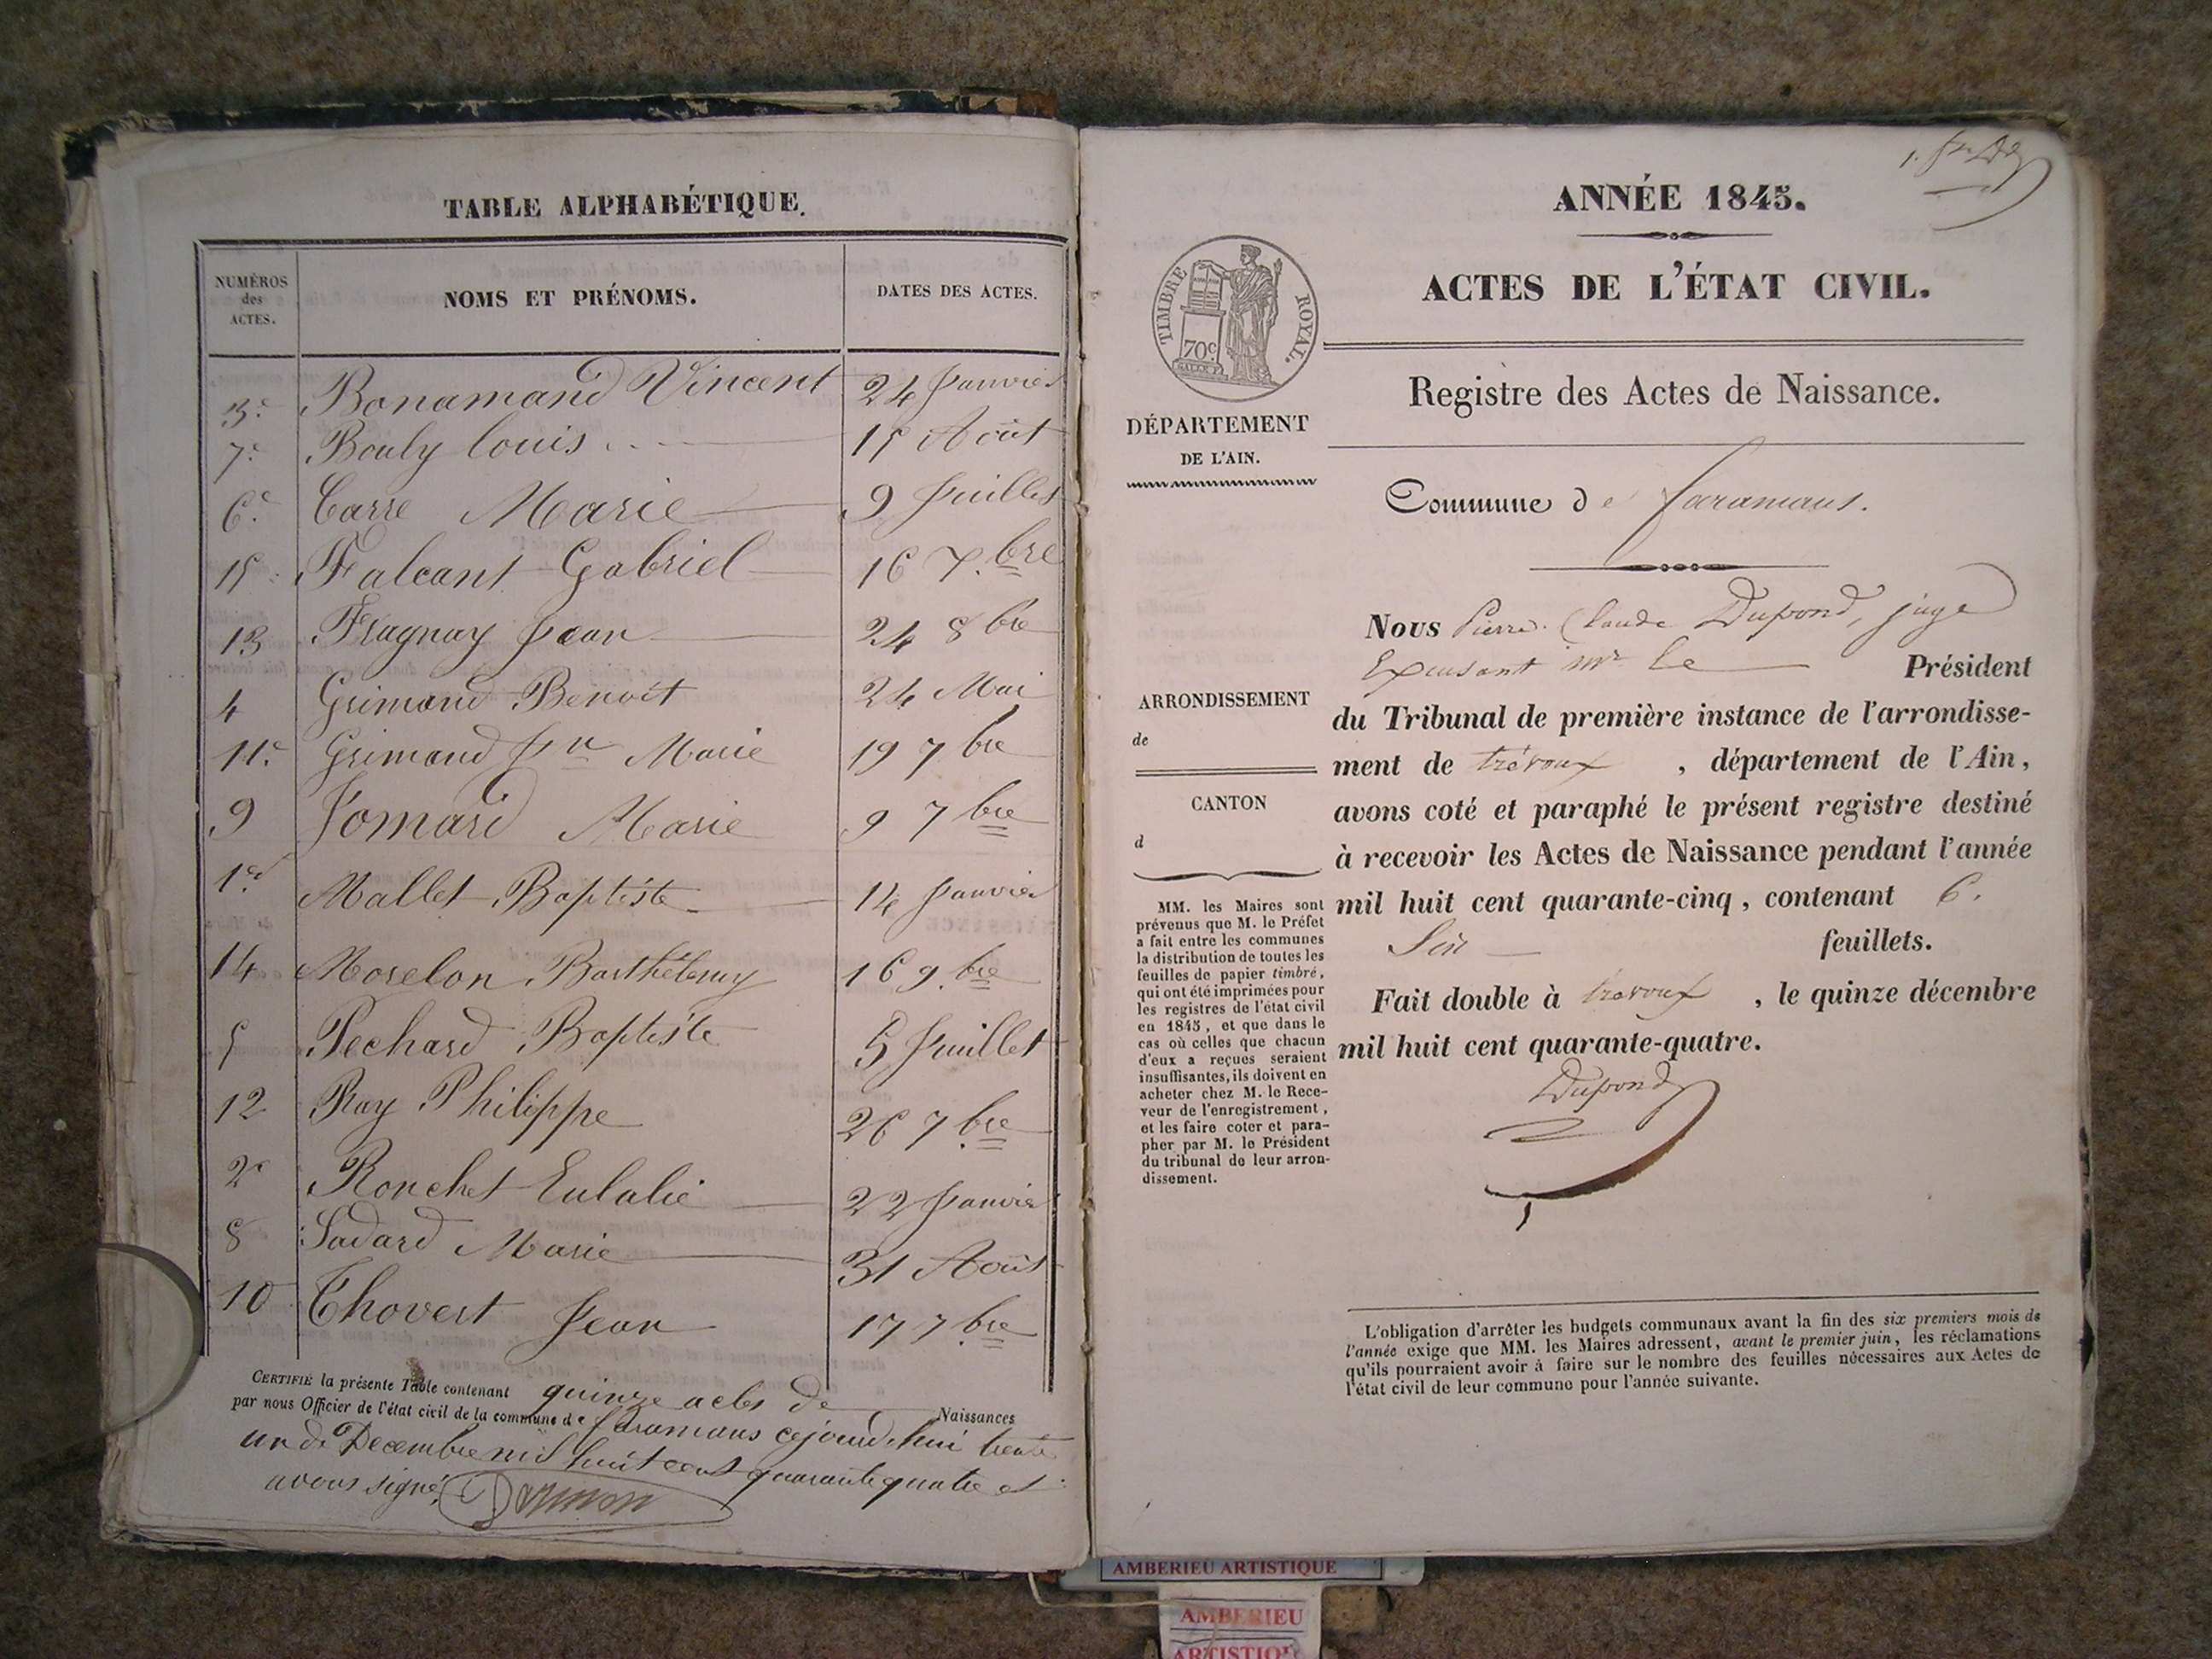 TABLE ALPHABÉTIQUE.
NUMÉROS des ACTES. NOMS ET PRÉNOMS. DATES DES ACTES.
3e Bonamand Vincent 24 Janvier
7e Bouly louis 15 Août
6e Carre Marie 9 Juillet
15 Falcant Gabriel 16 X.bre
13 Fragnay Jean 24 8bre
4 Grimand Benoît 24 Mai
11e Grimand Marie 19 7bre
9 Jomard Marie 9 7bre
1er Mallet Baptiste 14 Janvier
14 Morelon Barthélemy 16 9.bre
5 Pechard Baptiste 5 Juillet
12 Ray Philippe 26 7bre
2e Ronchet Eulalie 22 Janvier
8 Sadard Marie 31 Août
10 Thovert Jean 17 7bre
CERTIFIÉ la présente Table contenant quinze actes de Naissances
par nous Officier de l'état civil de la commune de faramans cejourd'hui trente
un de Decembre mil huit cent quarante quatre et
avons signé
ANNÉE 1845.
TIMBRE ROYAL.
70c.
ACTES DE L'ÉTAT CIVIL.
Registre des Actes de Naissance.
DÉPARTEMENT
DE L'AIN.
Commune de faramans.
Nous Pierre Claude Dupond, juge
Excusant Mr le Président
du Tribunal de première instance de l'arrondisse-
ment de trévoux , département de l'Ain,
avons coté et paraphé le présent registre destiné
à recevoir les Actes de Naissance pendant l'année
mil huit cent quarante-cinq, contenant 6.
Six feuillets.
Fait double à trevoux , le quinze décembre
mil huit cent quarante-quatre.
Dupond
ARRONDISSEMENT
de
CANTON
d
MM. les Maires sont
prévenus que M. le Préfet
a fait entre les communes
la distribution de toutes les
feuilles de papier timbré,
qui ont été imprimées pour
les registres de l'état civil
en 1845, et que dans le
cas où celles que chacun
d'eux a reçues seraient
insuffisantes, ils doivent en
acheter chez M. le Rece-
veur de l'enregistrement,
et les faire coter et para-
pher par M. le Président
du tribunal de leur arron-
dissement.
L'obligation d'arrêter les budgets communaux avant la fin des six premiers mois de
l'année exige que MM. les Maires adressent, avant le premier juin, les réclamations
qu'ils pourraient avoir à faire sur le nombre des feuilles nécessaires aux Actes de
l'état civil de leur commune pour l'année suivante.
AMBERIEU ARTISTIQUE
AMBERIEU
ARTISTIQUE